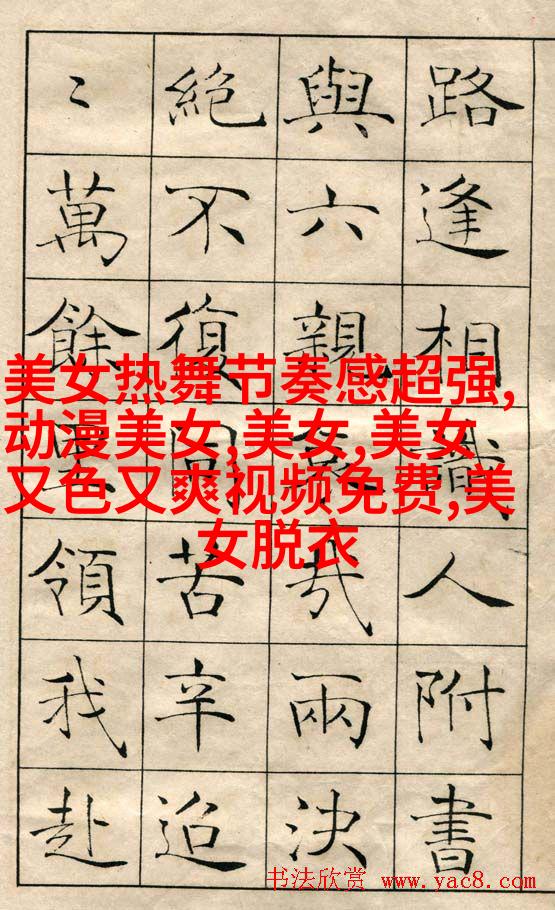 路逢相識人附書
與六親哉兩決
絕不復同苦辛迢
〻萬餘領我赴
美女热舞节奏感超强,
动漫美女,美女,美女
又色又爽视频免费,美
女脱衣
书法欣赏 www.yac8.com